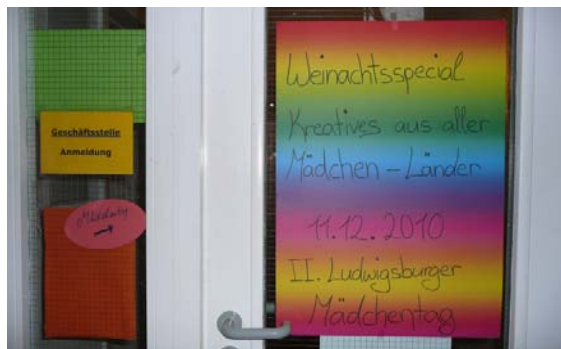 Geschäftsstelle
Anmeldung
Weinachtsspecial
Kreatives aus aller
Mädchen - Länder
11.12.2010
II. Ludwigsburger
Mädchentag